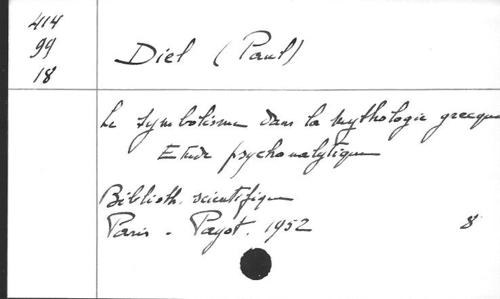 414
99
18
Diel (Paul)
Le symbolisme dans la mythologie grecque
Etude psychanalytique
Biblioth. scientifique
Paris - Payot. 1952 8